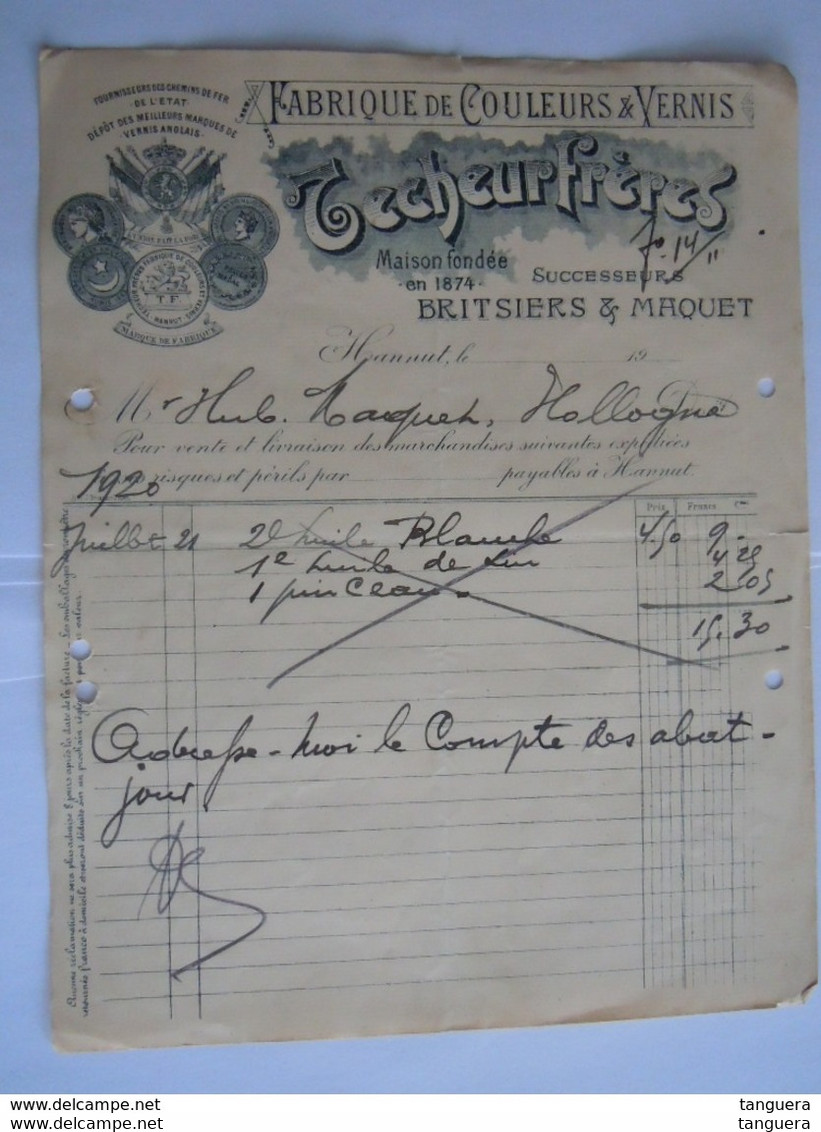 FOURNISSEURS DES CHEMINS DE FER
- DE L'ETAT -
DÉPÔT DES MEILLEURS MARQUES DE
- VERNIS ANGLAIS -
FABRIQUE DE COULEURS & VERNIS
Techeur Frères
Maison fondée
- en 1874 -
SUCCESSEURS
BRITSIERS & MAQUET
14/11
L'UNION FAIT LA FORCE
T F
HANNUT
MARQUE DE FABRIQUE
Hannut, le 19
Mr Hub. Maquet, Hollogne
Pour vente et livraison des marchandises suivantes expédiées
risques et périls par payables à Hannut.
1920
Prix Francs Cs
Juillet 21 2l huile Blanche 4.50 9.-
1l huile de Lin 4 25
1 pinceau. 2.05
15.30
Adresse-moi le Compte des abat-
jour
Aucune réclamation ne sera plus admise 8 jours après la date de la facture. Les emballages
franco à domicile seront déduits sur un prochain
delcampe.net
tanguera
delcampe.net
tanguera